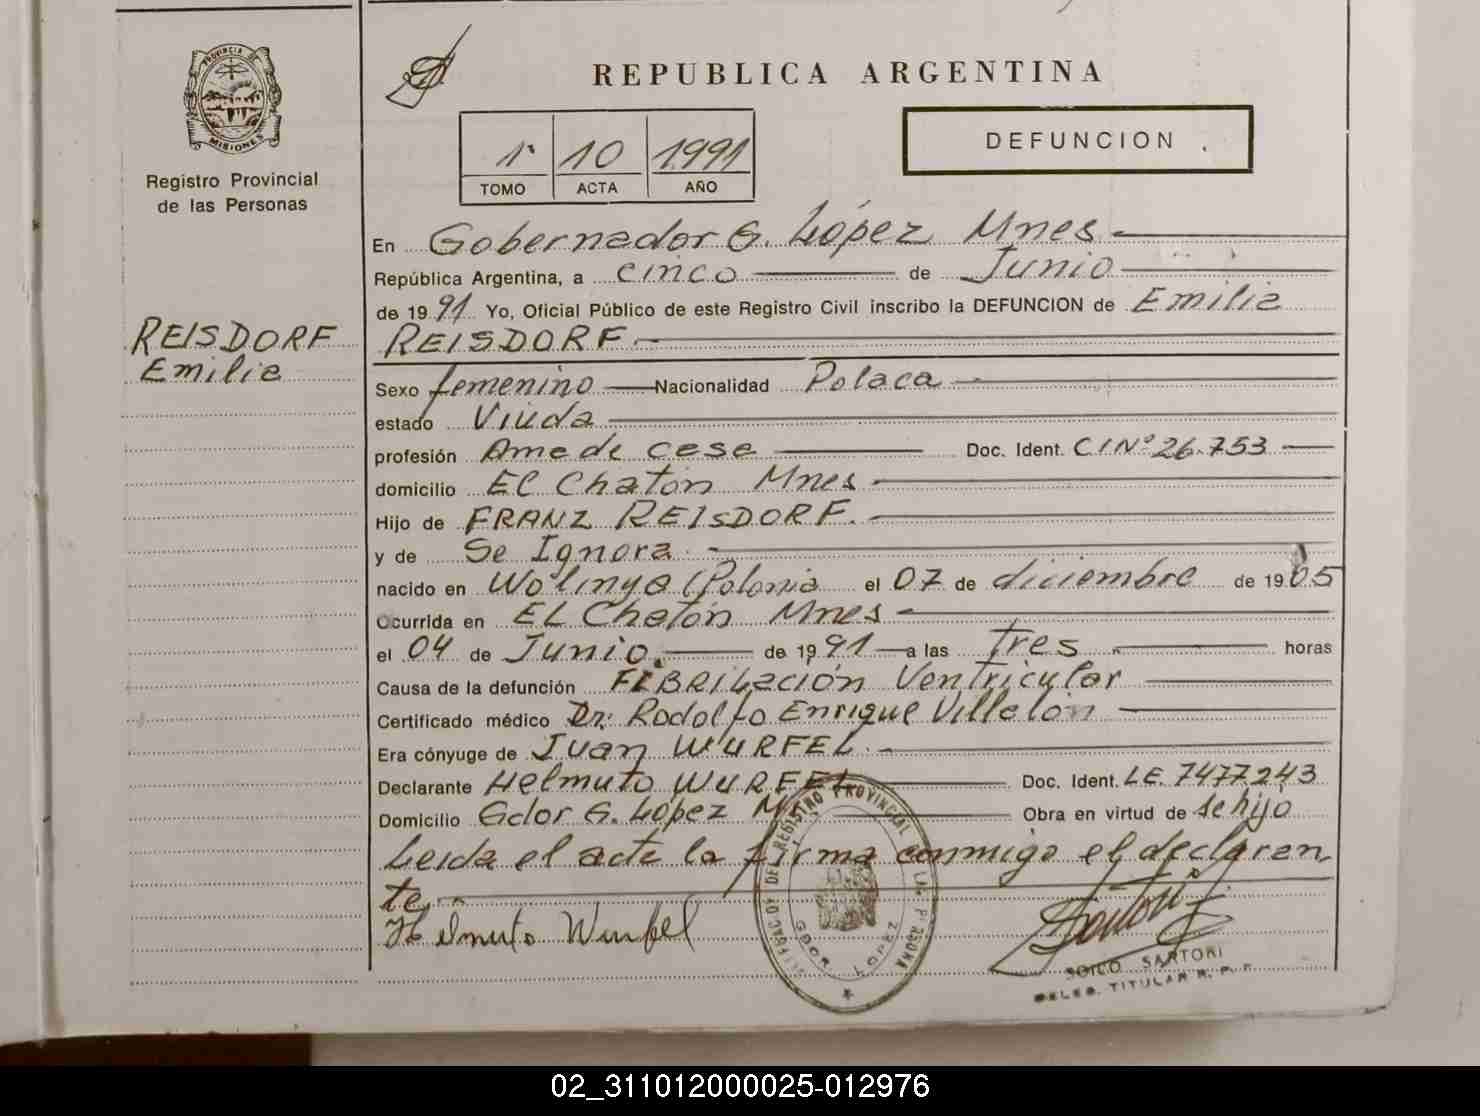 REPUBLICA ARGENTINA
PROVINCIA DE
MISIONES
Registro Provincial
de las Personas
1º 10 1991
TOMO ACTA AÑO
DEFUNCION
En Gobernador G. López Mnes
República Argentina, a cinco de Junio
de 1991 Yo, Oficial Público de este Registro Civil inscribo la DEFUNCION de Emilia
REISDORF
REISDORF
Emilia
Sexo femenino Nacionalidad Polaca
estado Viuda
profesión Ama de casa Doc. Ident. CINº 26.753
domicilio El Chatón Mnes
Hijo de FRANZ REISDORF.
y de Se Ignora
nacido en Wolinya (Polonia el 07 de diciembre de 1905
Ocurrida en EL Chatón Mnes
el 04 de Junio. de 1991 a las Tres horas
Causa de la defunción FIBRILación Ventricular
Certificado médico Dr. Rodolfo Enrique Villalón
Era cónyuge de Juan WURFEL.
Declarante Helmuto WURFEL Doc. Ident. LE. 7477.243
Domicilio Gdor G. López Obra en virtud de se hijo
Leida el acta la firma conmigo el declaran
te
Helmuto Wurfel
DEL REGISTRO PROVINCIAL
GDOR LOPEZ
SOILO SARTORI
DELEG. TITULAR R. P. P.
02_311012000025-012976